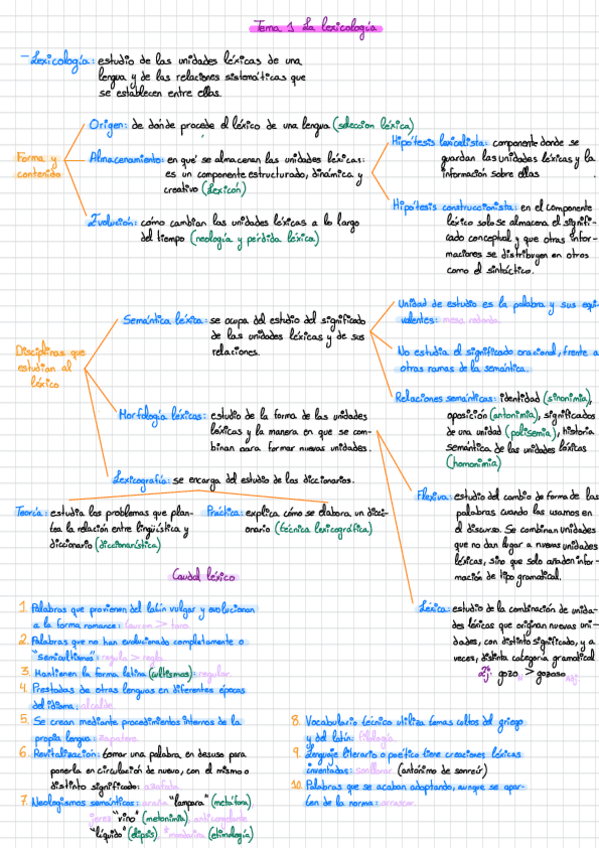 Tema 1 La lexicología
- Lexicología: estudio de las unidades léxicas de una
lengua y de las relaciones sistemáticas que
se establecen entre ellas.
Forma y
contenido
Origen: de dónde procede el léxico de una lengua (selección léxica)
Almacenamiento: en qué se almacenan las unidades léxicas:
es un componente estructurado, dinámica y
creativo (Lexicón)
Hipótesis lexicalista: componente donde se
guardan las unidades léxicas y la
información sobre ellas
Hipótesis construccionista: en el componente
léxico solo se almacena el signifi-
cado conceptual y que otras infor-
maciones se distribuyen en otros
como el sintáctico.
Evolución: cómo cambian las unidades léxicas a lo largo
del tiempo (neología y pérdida léxica)
Disciplinas que
estudian al
léxico
Semántica léxica: se ocupa del estudio del significado
de las unidades léxicas y de sus
relaciones.
Unidad de estudio es la palabra y sus equi-
valentes: mesa redonda
No estudia el significado oracional, frente a
otras ramas de la semántica.
Relaciones semánticas: identidad (sinonimia),
oposición (antonimia), significados
de una unidad (polisemia), historia
semántica de las unidades léxicas
(homonimia)
Morfología léxicas: estudio de la forma de las unidades
léxicas y la manera en que se com-
binan para formar nuevas unidades.
Flexiva: estudio del cambio de forma de las
palabras cuando las usamos en
el discurso. Se combinan unidades
que no dan lugar a nuevas unidades
léxicas, sino que solo añaden infor-
mación de tipo gramatical.
Léxica: estudio de la combinación de unida-
des léxicas que originan nuevas uni-
dades, con distinto significado, y a
veces, distinta categoría gramatical
Ej: gozo > gozoso
Lexicografía: se encarga del estudio de los diccionarios.
Teoría: estudia los problemas que plan-
tea la relación entre lingüística y
diccionario (diccionarística)
Práctica: explica cómo se elabora un dicci-
onario (técnica lexicográfica)
Caudal léxico
1. Palabras que provienen del latín vulgar y evolucionan
a la forma romance: taurum > toro
2. Palabras que no han evolucionado completamente o
"semicultismo": regula > regla
3. Mantienen la forma latina (cultismos): regular
4. Prestadas de otras lenguas en diferentes épocas
del idioma: alcalde
5. Se crean mediante procedimientos internos de la
propia lengua: zapatero
6. Revitalización: tomar una palabra en desuso para
ponerla en circulación de nuevo, con el mismo o
distinto significado: azafata
7. Neologismos semánticos: araña "lampara" (metáfora)
jerez "vino" (metonimia) anticongelante
"líquido" (elipsis) mandarina (etimología)
8. Vocabulario técnico utiliza temas cultos del griego
y del latín: filología
9. Lenguaje literario o poético tiene creaciones léxicas
inventadas: sonllorar (antónimo de sonreír)
10. Palabras que se acaban adoptando, aunque se apar-
ten de la norma: